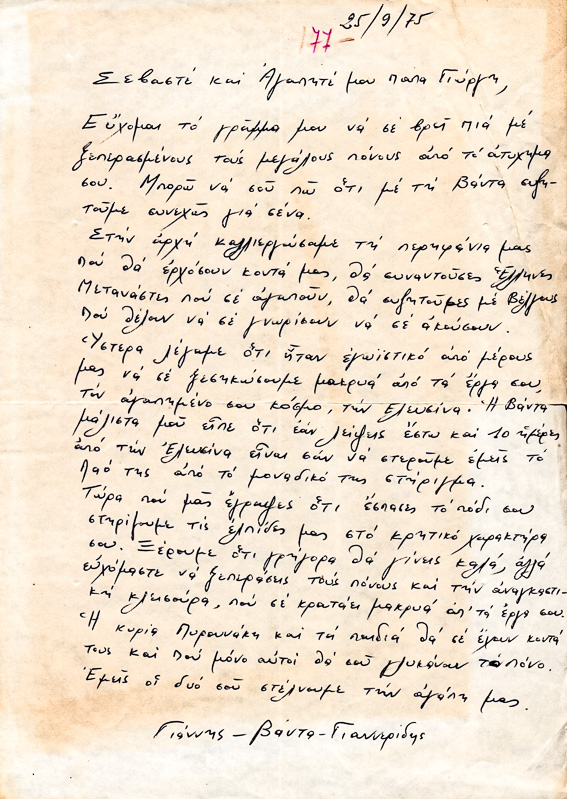 25/9/75
77
Σεβαστέ και Ἀγαπητέ μου παπα Γιώργη,
Εὔχομαι τό γράμμα μου νά σέ βρεῖ πιά μέ
ξεπερασμένους τούς μεγάλους πόνους ἀπό τό ἀτύχημα
σου. Μπορῶ νά σοῦ πῶ ὅτι μέ τή Βάντα συζη-
τοῦμε συνεχῶς γιά σένα.
Στήν ἀρχή καλλιεργούσαμε τή περηφάνια μας
πού θά ἐρχόσουν κοντά μας, θά συναντοῦσες Ἕλληνες
Μετανάστες πού σέ ἀγαποῦν, θά συζητοῦσες μέ Βέλγους
πού θέλουν νά σέ γνωρίσουν νά σέ ἀκούσουν.
Ὕστερα λέγαμε ὅτι ἦταν ἐγωϊστικό ἀπό μέρους
μας νά σέ ξεσηκώσουμε μακρυά ἀπό τά ἔργα σου,
τόν ἀγαπημένο σου κόσμο, τήν Ελευσίνα. Ἡ Βάντα
μάλιστα μοῦ εἶπε ὅτι ἐάν λείψεις ἔστω και 10 ἡμέρες
ἀπό τήν Ἐλευσίνα εἶναι σάν νά στεροῦμε ἐμεῖς τό
λαό της ἀπό τό μοναδικό της στήριγμα.
Τώρα πού μᾶς ἔγραψες ὅτι ἔσπασες τό πόδι σου
στηρίζουμε τίς ἐλπίδες μας στό κρητικό χαρακτήρα
σου. Ξέρουμε ὅτι γρήγορα θά γίνεις καλά, ἀλλά
εὐχόμαστε νά ξεπεράσεις τούς πόνους και τήν ἀναγκαστι-
κή κλεισούρα, πού σέ κρατάει μακρυά ἀπ' τά ἔργα σου.
Ἡ κυρία Πυρουνάκη και τά παιδιά θά σέ ἔχουν κοντά
τους και πού μόνο αὐτοί θά σοῦ γλυκάνουν τό πόνο.
Ἐμεῖς οἱ δυό σοῦ στέλνουμε τήν ἀγάπη μας.
Γιάννης - Βάντα - Γιαννερίδης